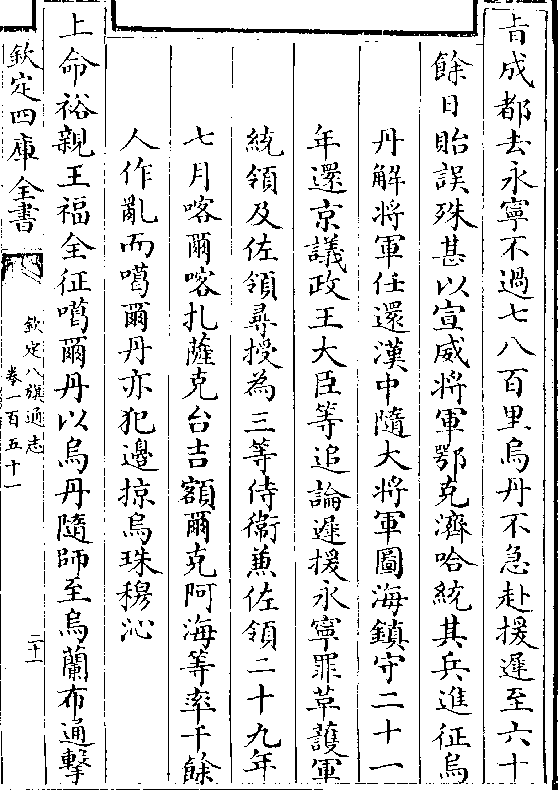 旨成都去永寧不過七八百里烏丹不急赴援遲至六十
餘日貽誤殊甚以宣威將軍鄂克濟哈統其兵進征烏
丹解將軍任還漢中隨大將軍圖海鎮守二十一
年還京議政王大臣等追論遲援永寧罪革䕶軍
統領及佐領尋授為三等侍衞兼佐領二十九年
七月喀爾喀扎薩克台吉額爾克阿海等率千餘
人作亂而噶爾丹亦犯邊掠烏珠穆沁
上命裕親王福全征噶爾丹以烏丹隨師至烏蘭布通擊
欽定四庫全書
欽定八旗通志
卷一百五十一
二十一